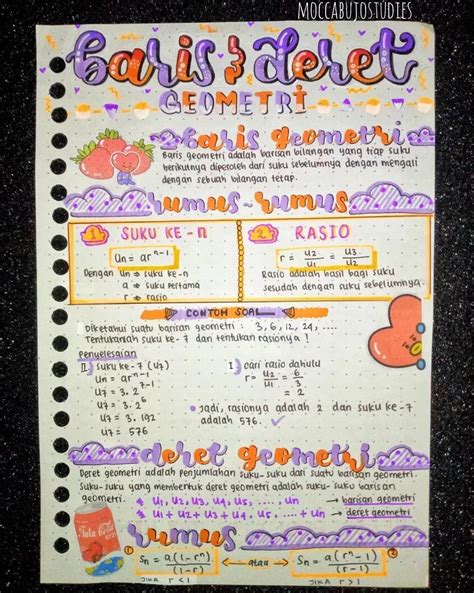 MOCCABUJOSTUDIES
baris & deret
GEOMETRI
baris geometri
Baris geometri adalah barisan bilangan yang tiap suku
berikutnya diperoleh dari suku sebelumnya dengan mengali
dengan sebuah bilangan tetap.
rumus-rumus
1 SUKU KE-n
Un = ar^n-1
Dengan Un ⇒ suku ke-n
a ⇒ suku pertama
r ⇒ rasio
2. RASIO
r = U2/U1 = U3/U2
Rasio adalah hasil bagi suku
sesudah dengan suku sebelumnya.
CONTOH SOAL
Diketahui suatu barisan geometri : 3, 6, 12, 24, ....
Tentukanlah suku ke-7 dan tentukan rasionya !
Penyelesaian
II) suku ke-7 (U7)
Un = ar^n-1
U7 = 3. 2^7-1
U7 = 3. 2^6
U7 = 3. 192
U7 = 576
I) cari rasio dahulu
r = U2/U1 = 6/3
= 2
• Jadi, rasionya adalah 2 dan suku ke-7
adalah 576. ✓
deret geometri
Deret geometri adalah penjumlahan suku-suku dari suatu barisan geometri.
Suku-suku yang membentuk deret geometri adalah suku-suku barisan
geometri.
U1, U2, U3, U4, U5, .... , Un → barisan geometri
U1 + U2 + U3 + U4, U5, .... + Un → deret geometri
rumus
1 Sn = a(1-r^n)/(1-r)
JIKA r < 1
← atau →
Sn = a(r^n-1)/(r-1) 2
JIKA r > 1